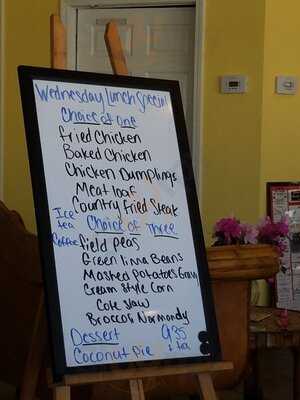 Wednesday Lunch Special
Choice of one
Fried Chicken
Baked Chicken
Chicken Dumplings
Meat loaf
Country fried Steak
Ice tea
Coffee
Choice of Three
field peas
Green lima Beans
Mashed Potatoes Gravy
Cream Style Corn
Cole Slaw
Broccoli Normandy
Dessert
Coconut pie
9.35
& tea